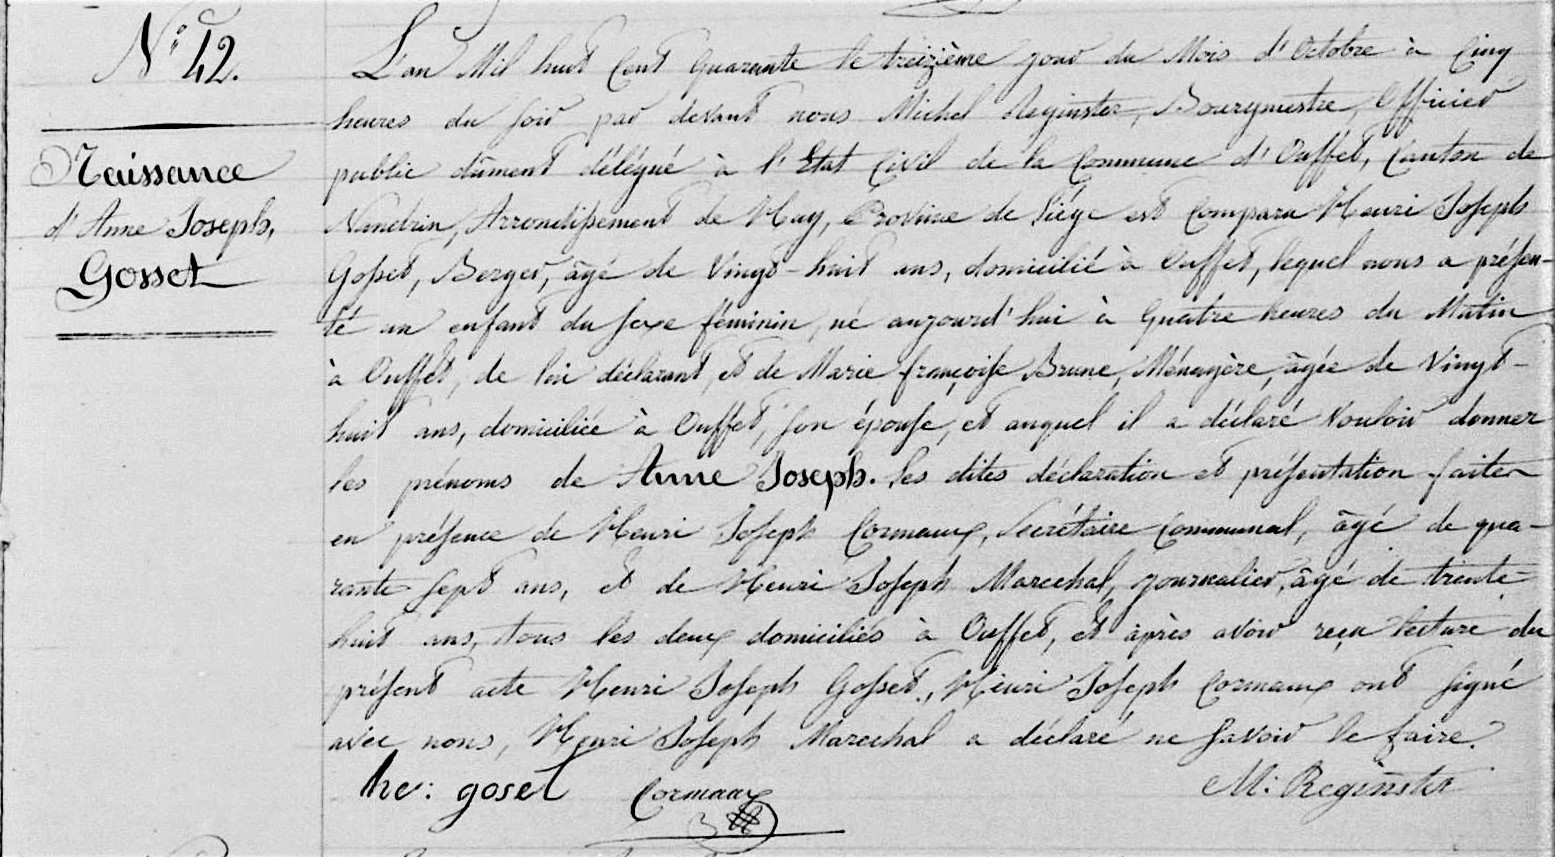 N° 42.
Naissance
d'Anne Joseph,
Gosset
L'an Mil huit Cent Quarante le treizième jour du Mois d'Octobre à Cinq
heures du soir par devant nous Michel Reginster, Bourgmestre, Officier
public dûment délégué à l'Etat Civil de la Commune d'Ouffet, Canton de
Nandrin, Arrondissement de Huy, Province de Liége est Comparu Henri Joseph
Gosset, Berger, âgé de Vingt-huit ans, domicilié à Ouffet, lequel nous a présen-
té un enfant du sexe féminin, né aujourd'hui à Quatre heures du Matin
à Ouffet, de lui déclarant, et de Marie françoise Brune, Ménagère, âgée de Vingt-
huit ans, domiciliée à Ouffet, son épouse, et auquel il a déclaré Vouloir donner
les prénoms de Anne Joseph. les dites déclaration et présentation faites
en présence de Henri Joseph Cormaux, Secrétaire Communal, âgé de qua-
rante sept ans, et de Henri Joseph Marechal, journalier, âgé de trente-
huit ans, tous les deux domiciliés à Ouffet, et après avoir reçu lecture du
présent acte Henri Joseph Gosset, Henri Joseph Cormaux ont signé
avec nous, Henri Joseph Marechal a déclaré ne savoir le faire.
he: goset Cormaux M: Reginster